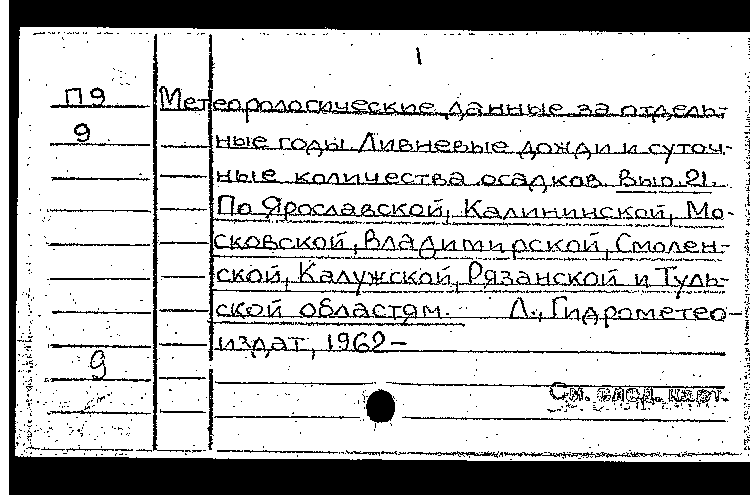 1
П9 Метеорологические данные за отдель-
9 ные годы Ливневые дожди и суточ-
ные количества осадков. Вып. 21.
По Ярославской, Калининской, Мо-
сковской, Владимирской, Смолен-
ской, Калужской, Рязанской и Туль-
ской областям. Л., Гидрометео-
издат, 1962-
9
См. след. карт.